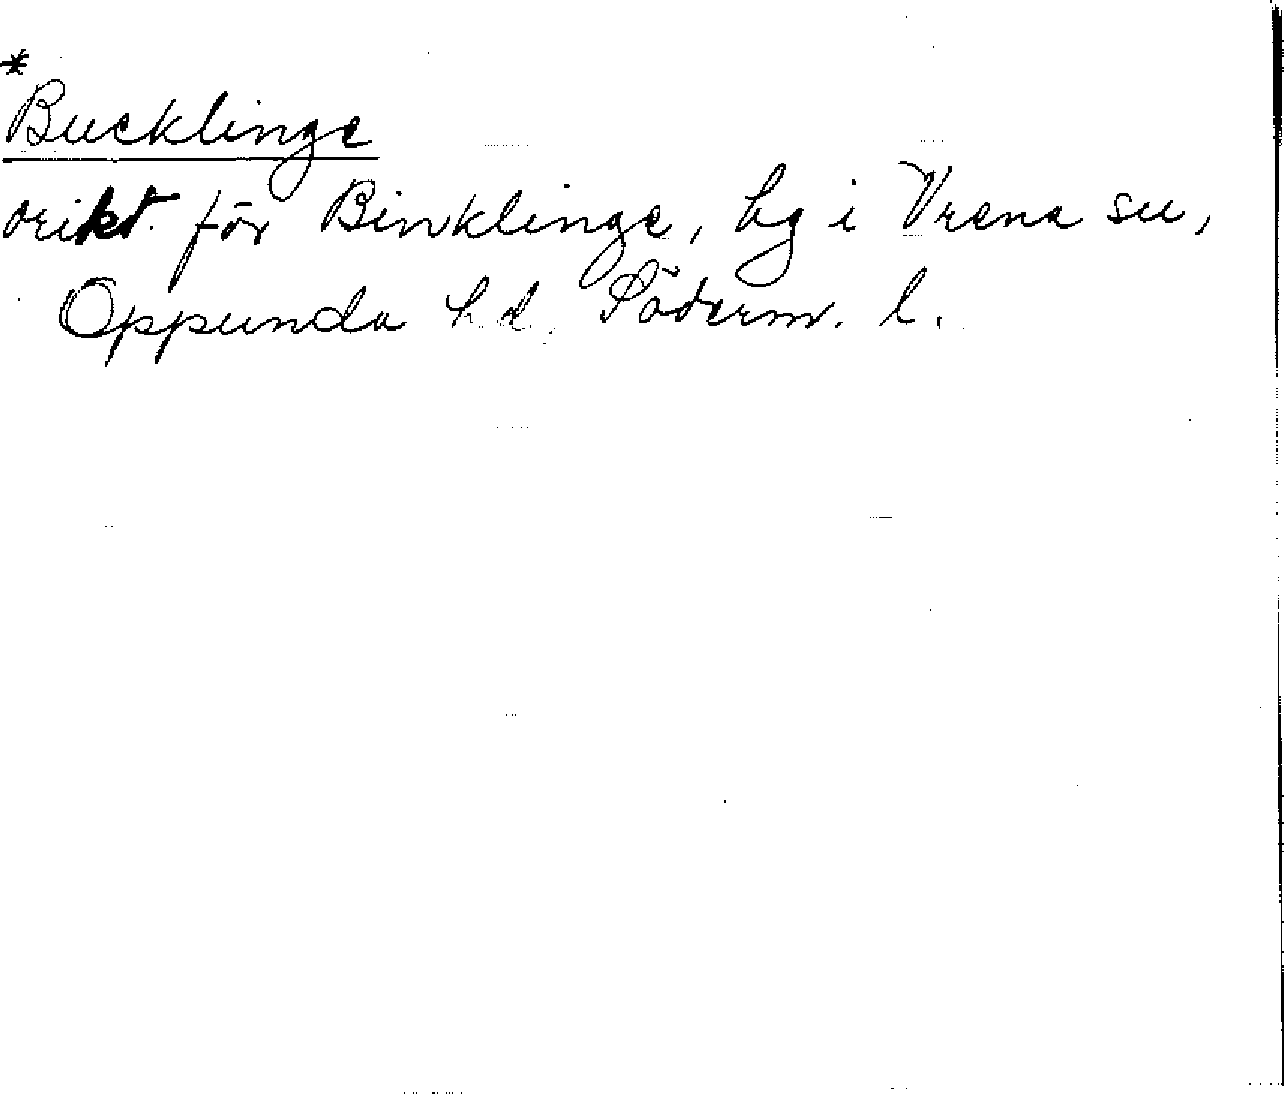 *
Bucklinge
orikt. för Binklinge, hg i Vrena sn,
Oppunda hd, Söderm. l.